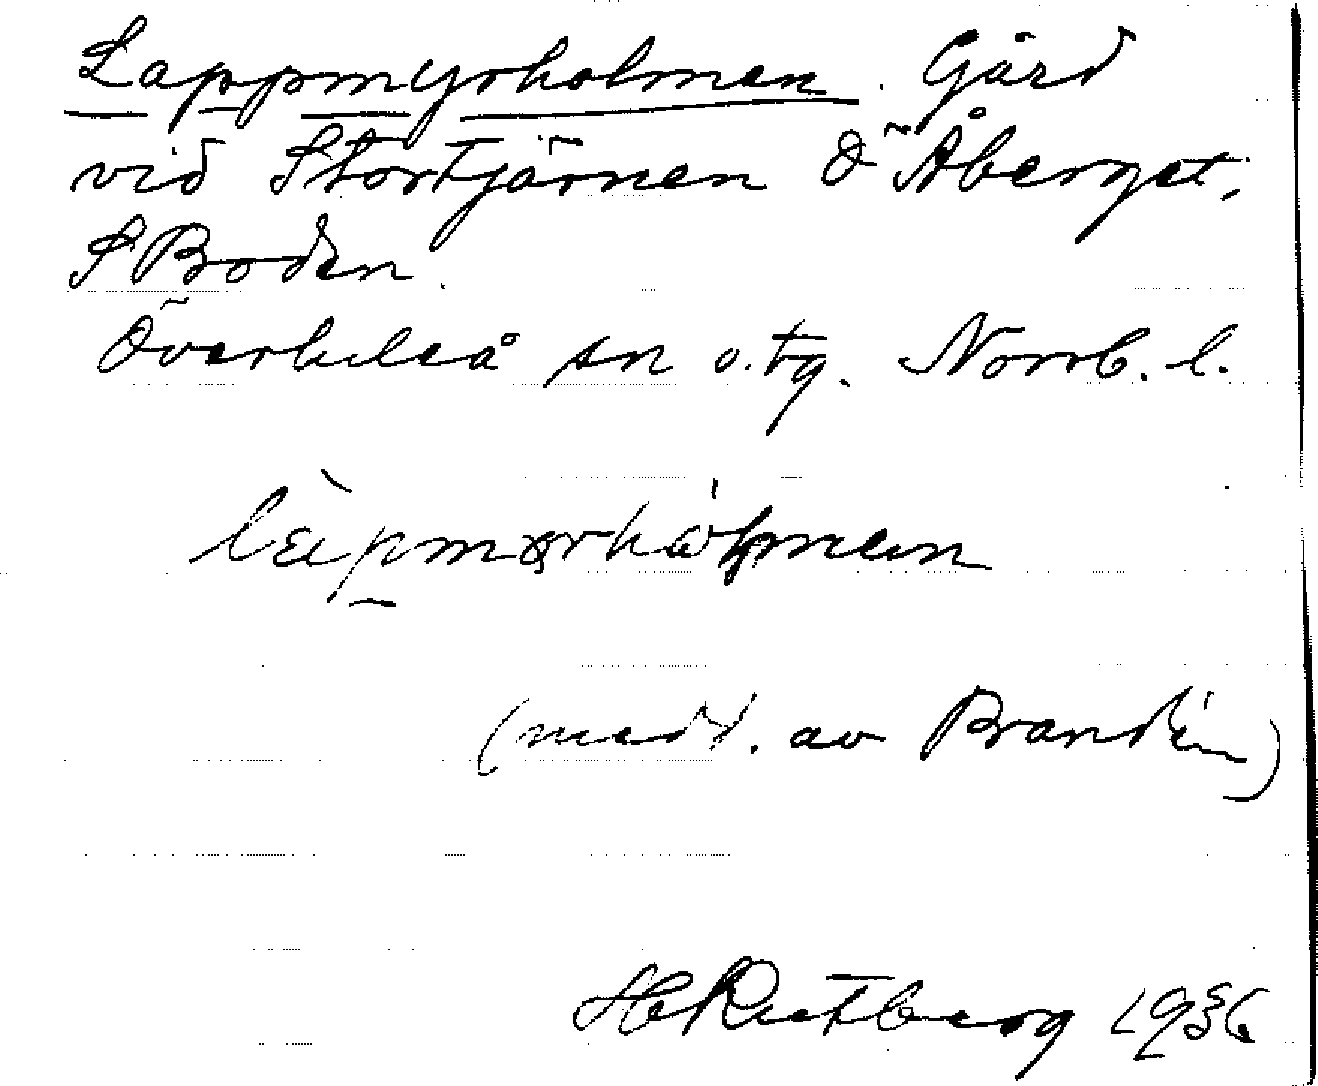 Lappmyrholmen. Gård
vid Stortjärnen Ö Åberget,
S Boden.
Överluleå sn o. tg. Norrb. l.
(medd. av Brandén)
H Rutberg 1936